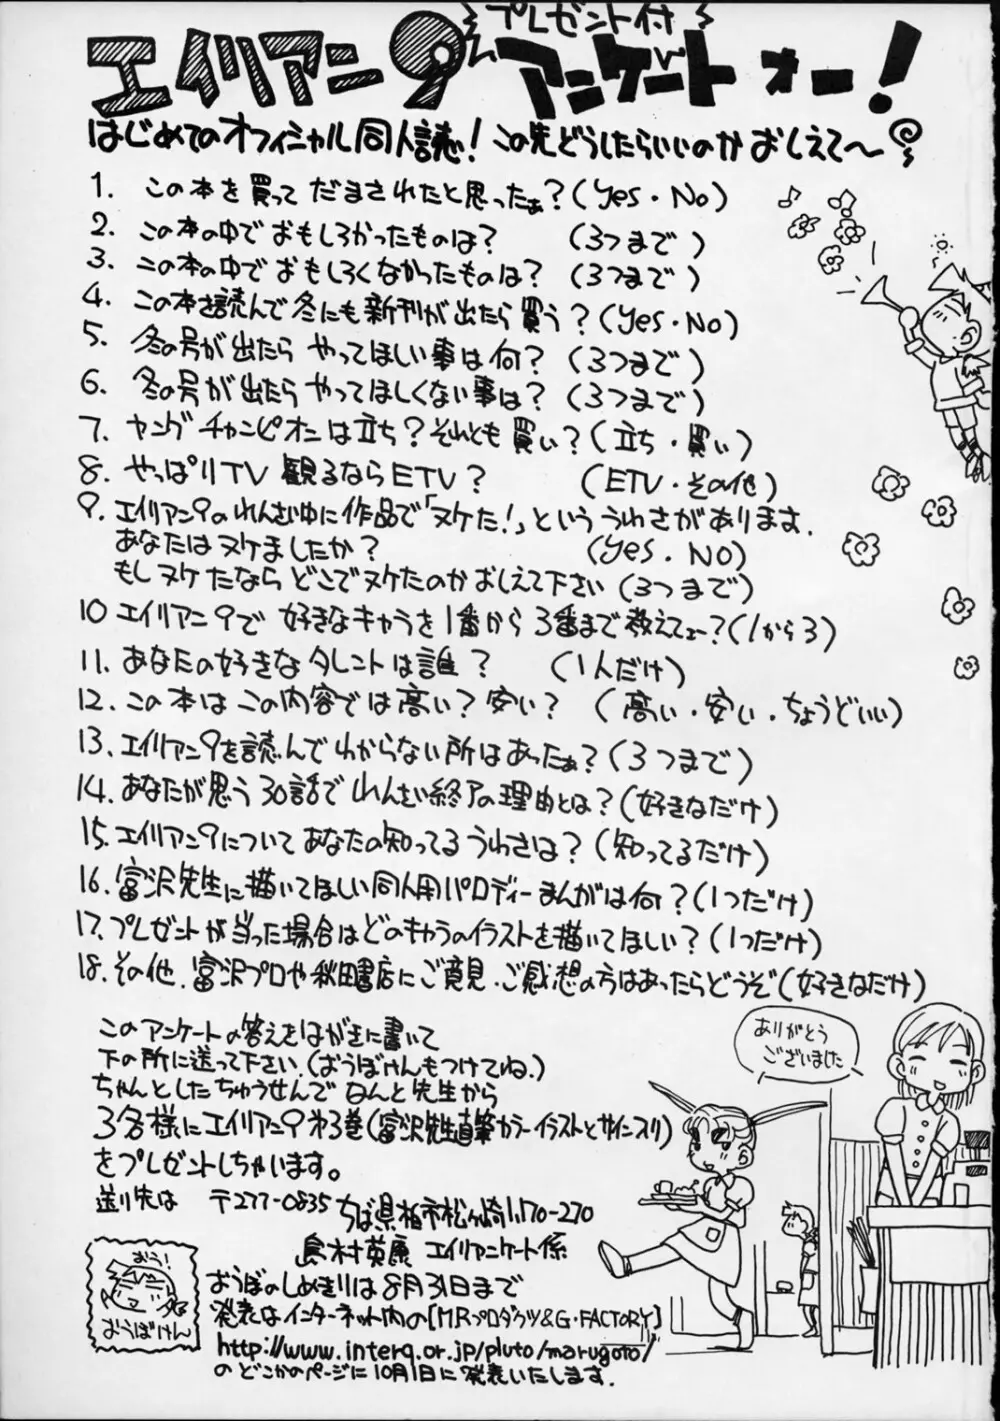 プレゼント付
エイリアン9 アンケートォー!
はじめてのオフィシャル同人誌! この先どうしたらいいのか おしえて〜
1. この本を買って だまされたと思ったぁ?(Yes・No)
2. この本の中で おもしろかったものは? (3つまで)
3. この本の中で おもしろくなかったものは? (3つまで)
4. この本を読んで 冬にも新刊が出たら買う?(Yes・No)
5. 冬の号が出たら やってほしい事は何? (3つまで)
6. 冬の号が出たら やってほしくない事は? (3つまで)
7. ヤングチャンピオンは立ち?それとも買い?(立ち・買い)
8. やっぱりTV 観るならETV? (ETV・その他)
9. エイリアン9のれんさい中に作品で「ヌケた!」といううわさがあります.
あなたはヌケましたか? (Yes・NO)
もしヌケたなら どこでヌケたのか おしえて下さい(3つまで)
10 エイリアン9で 好きなキャラを1番から3番まで教えてェー?(1から3)
11. あなたの好きなタレントは誰? (1人だけ)
12. この本は この内容では高い?安い? (高い・安い・ちょうどいい)
13. エイリアン9を読んで わからない所はあったぁ?(3つまで)
14. あなたが思う30話で れんさい終了の理由とは?(好きなだけ)
15. エイリアン9について あなたの知ってる うわさは?(知ってるだけ)
16. 富沢先生に描いてほしい同人用パロディーまんがは何?(1つだけ)
17. プレゼントが当った場合はどのキャラのイラストを描いてほしい?(1つだけ)
18. その他. 富沢プロや秋田書店にご意見・ご感想の方はあったらどうぞ(好きなだけ)
このアンケートの答えをはがきに書いて
下の所に送って下さい.(おうぼけんもつけてね.)
ちゃんとしたちゅうせんで なんと先生から
3名様にエイリアン9第3巻(富沢先生直筆カラーイラストとサイン入り)
をプレゼントしちゃいます。
送り先は 〒277-0835 ちば県柏市松ヶ崎1170-270
島村英康 エイリアンケート係
おうぼのしめきりは8月31日まで
発表はインターネット内の[M.R.プロダクツ&G・FACTORY]
http://www.interq.or.jp/pluto/marugoto/
の どこかのページに10月1日に発表いたします.
おう!
おうぼけん
ありがとう
ございました